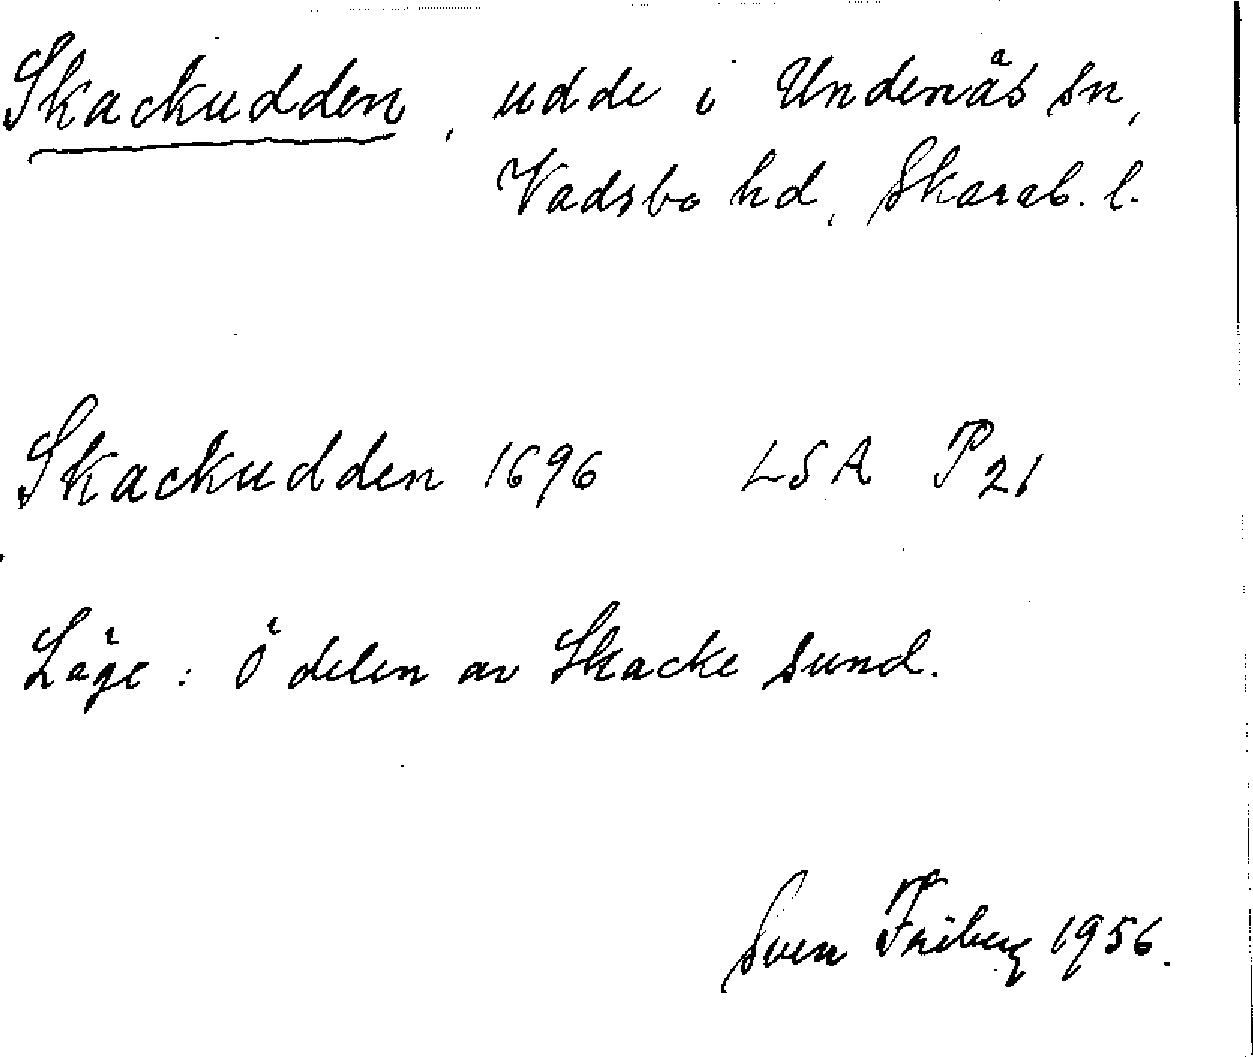 Skackudden, udde i Undenäs sn,
Vadsbo hd, Skarab. l.
Skackudden 1696 LSA P21
Läge: Ö delen av Skacke sund.
Sven Friberg 1956.